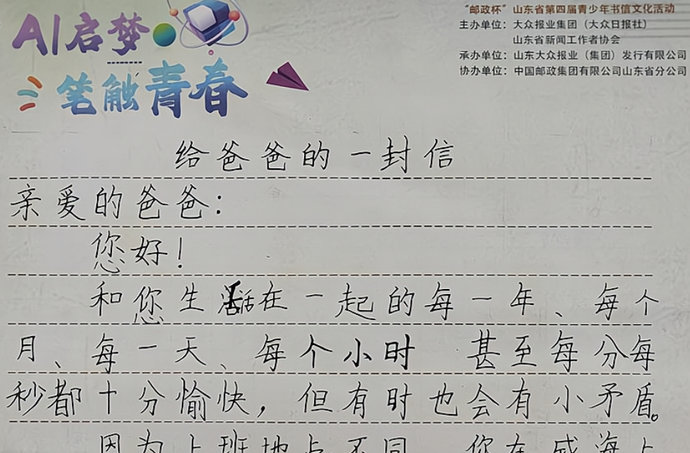 AI启梦
笔触青春
“邮政杯”山东省第四届青少年书信文化活动
主办单位：大众报业集团（大众日报社）
山东省新闻工作者协会
承办单位：山东大众报业（集团）发行有限公司
协办单位：中国邮政集团有限公司山东省分公司
给爸爸的一封信
亲爱的爸爸：
您好！
和您生活在一起的每一年、每个
月、每一天、每个小时 甚至每分每
秒都十分愉快，但有时也会有小矛盾。
因为上班地点不同，您在威海上